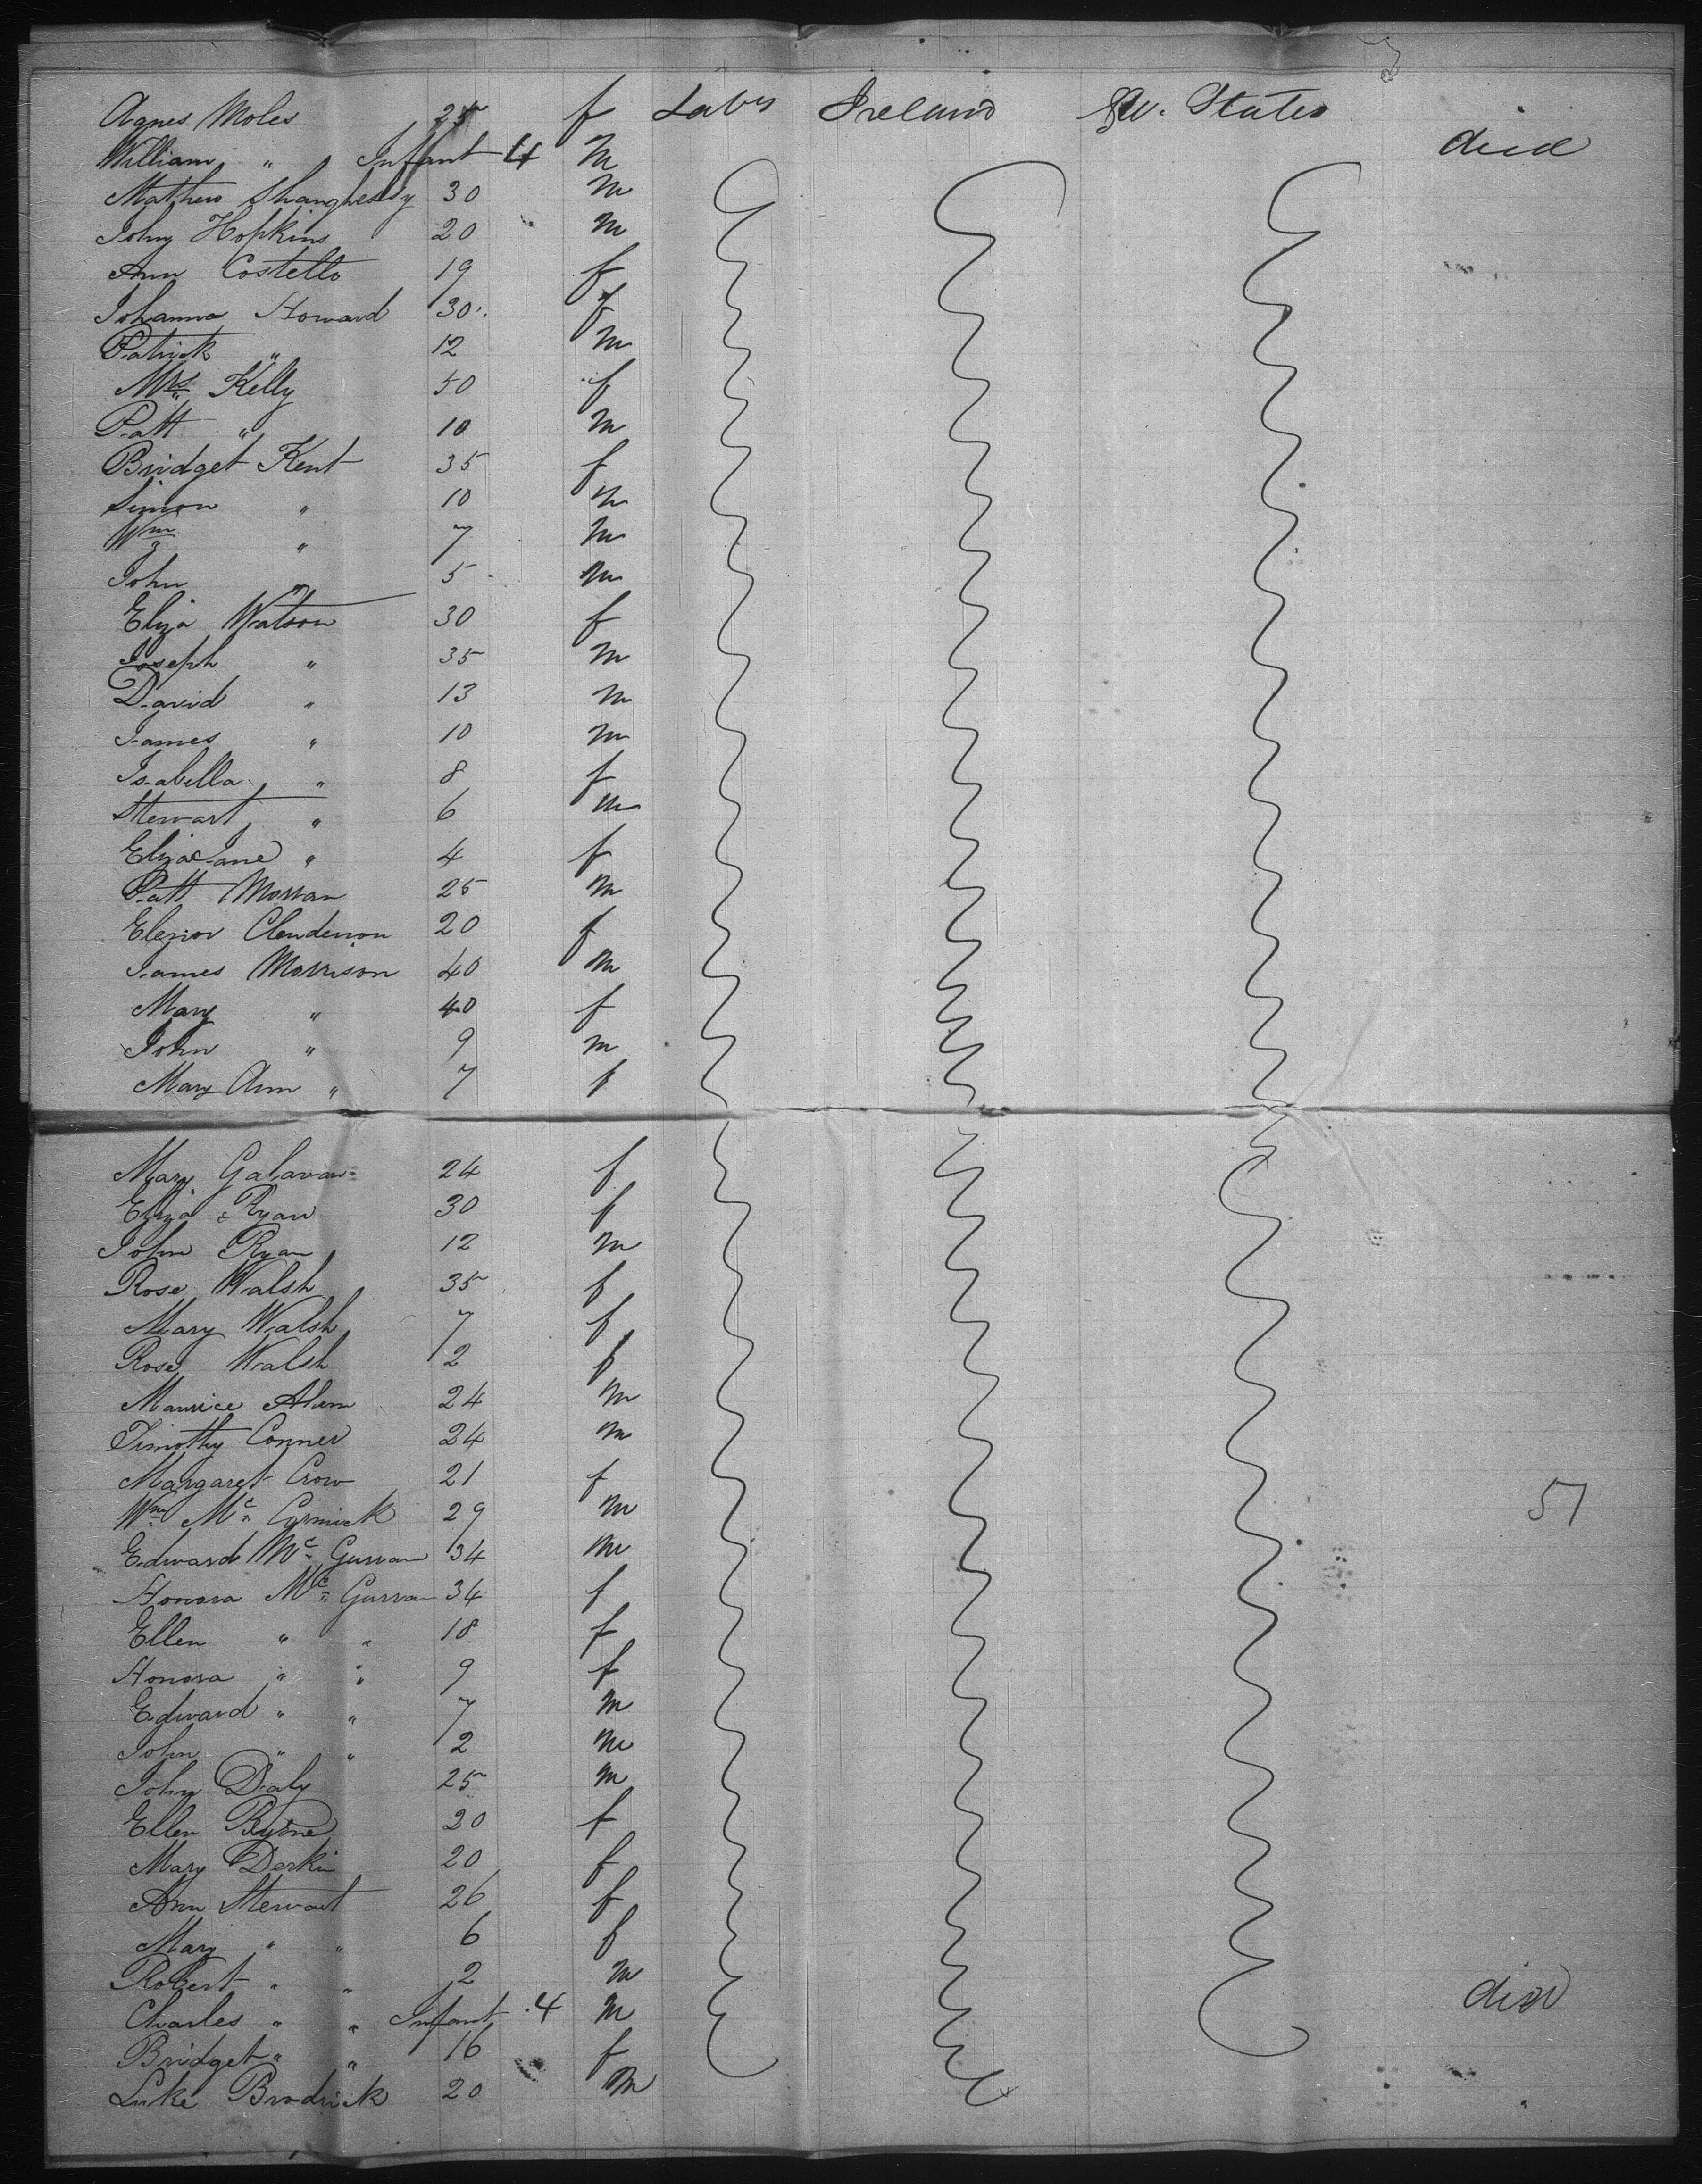 Agnes Moles 25 f Labr Ireland U. States
William " Infant 4 m died
Mathew Shanghessy 30 m
John Hopkins 20 m
Ann Costello 19 f
Johanna Howard 30 f
Patrick " 12 m
Mrs Kelly 50 f
Patt " 10 m
Bridget Kent 35 f
Simon " 10 m
Wm " 7 m
John " 5 m
Eliza Watson 30 f
Joseph " 35 m
David " 13 m
James " 10 m
Isabella " 8 f
Stewart " 6 m
Eliza Jane " 4 f
Patt Morran 25 m
Elenor Clendenon 20 f
James Morrison 40 m
Mary " 40 f
John " 9 m
Mary Ann " 7 f
Mary Galavan 24 f
Eliza Ryan 30 f
John Ryan 12 m
Rose Walsh 35 f
Mary Walsh 7 f
Rose Walsh 2 f
Maurice Ahern 24 m
Timothy Conner 24 m
Margaret Crow 21 f
Wm Mc Cormick 29 m 51
Edward Mc Gurran 34 m
Honora Mc Gurran 34 f
Ellen " " 18 f
Honora " " 9 f
Edward " " 7 m
John " " 2 m
John Daly 25 m
Ellen Byrne 20 f
Mary Derkin 20 f
Ann Stewart 26 f
Mary " " 6 f
Robert " " 2 m
Charles " " Infant 4 m died
Bridget " " 16 f
Luke Brodrick 20 m